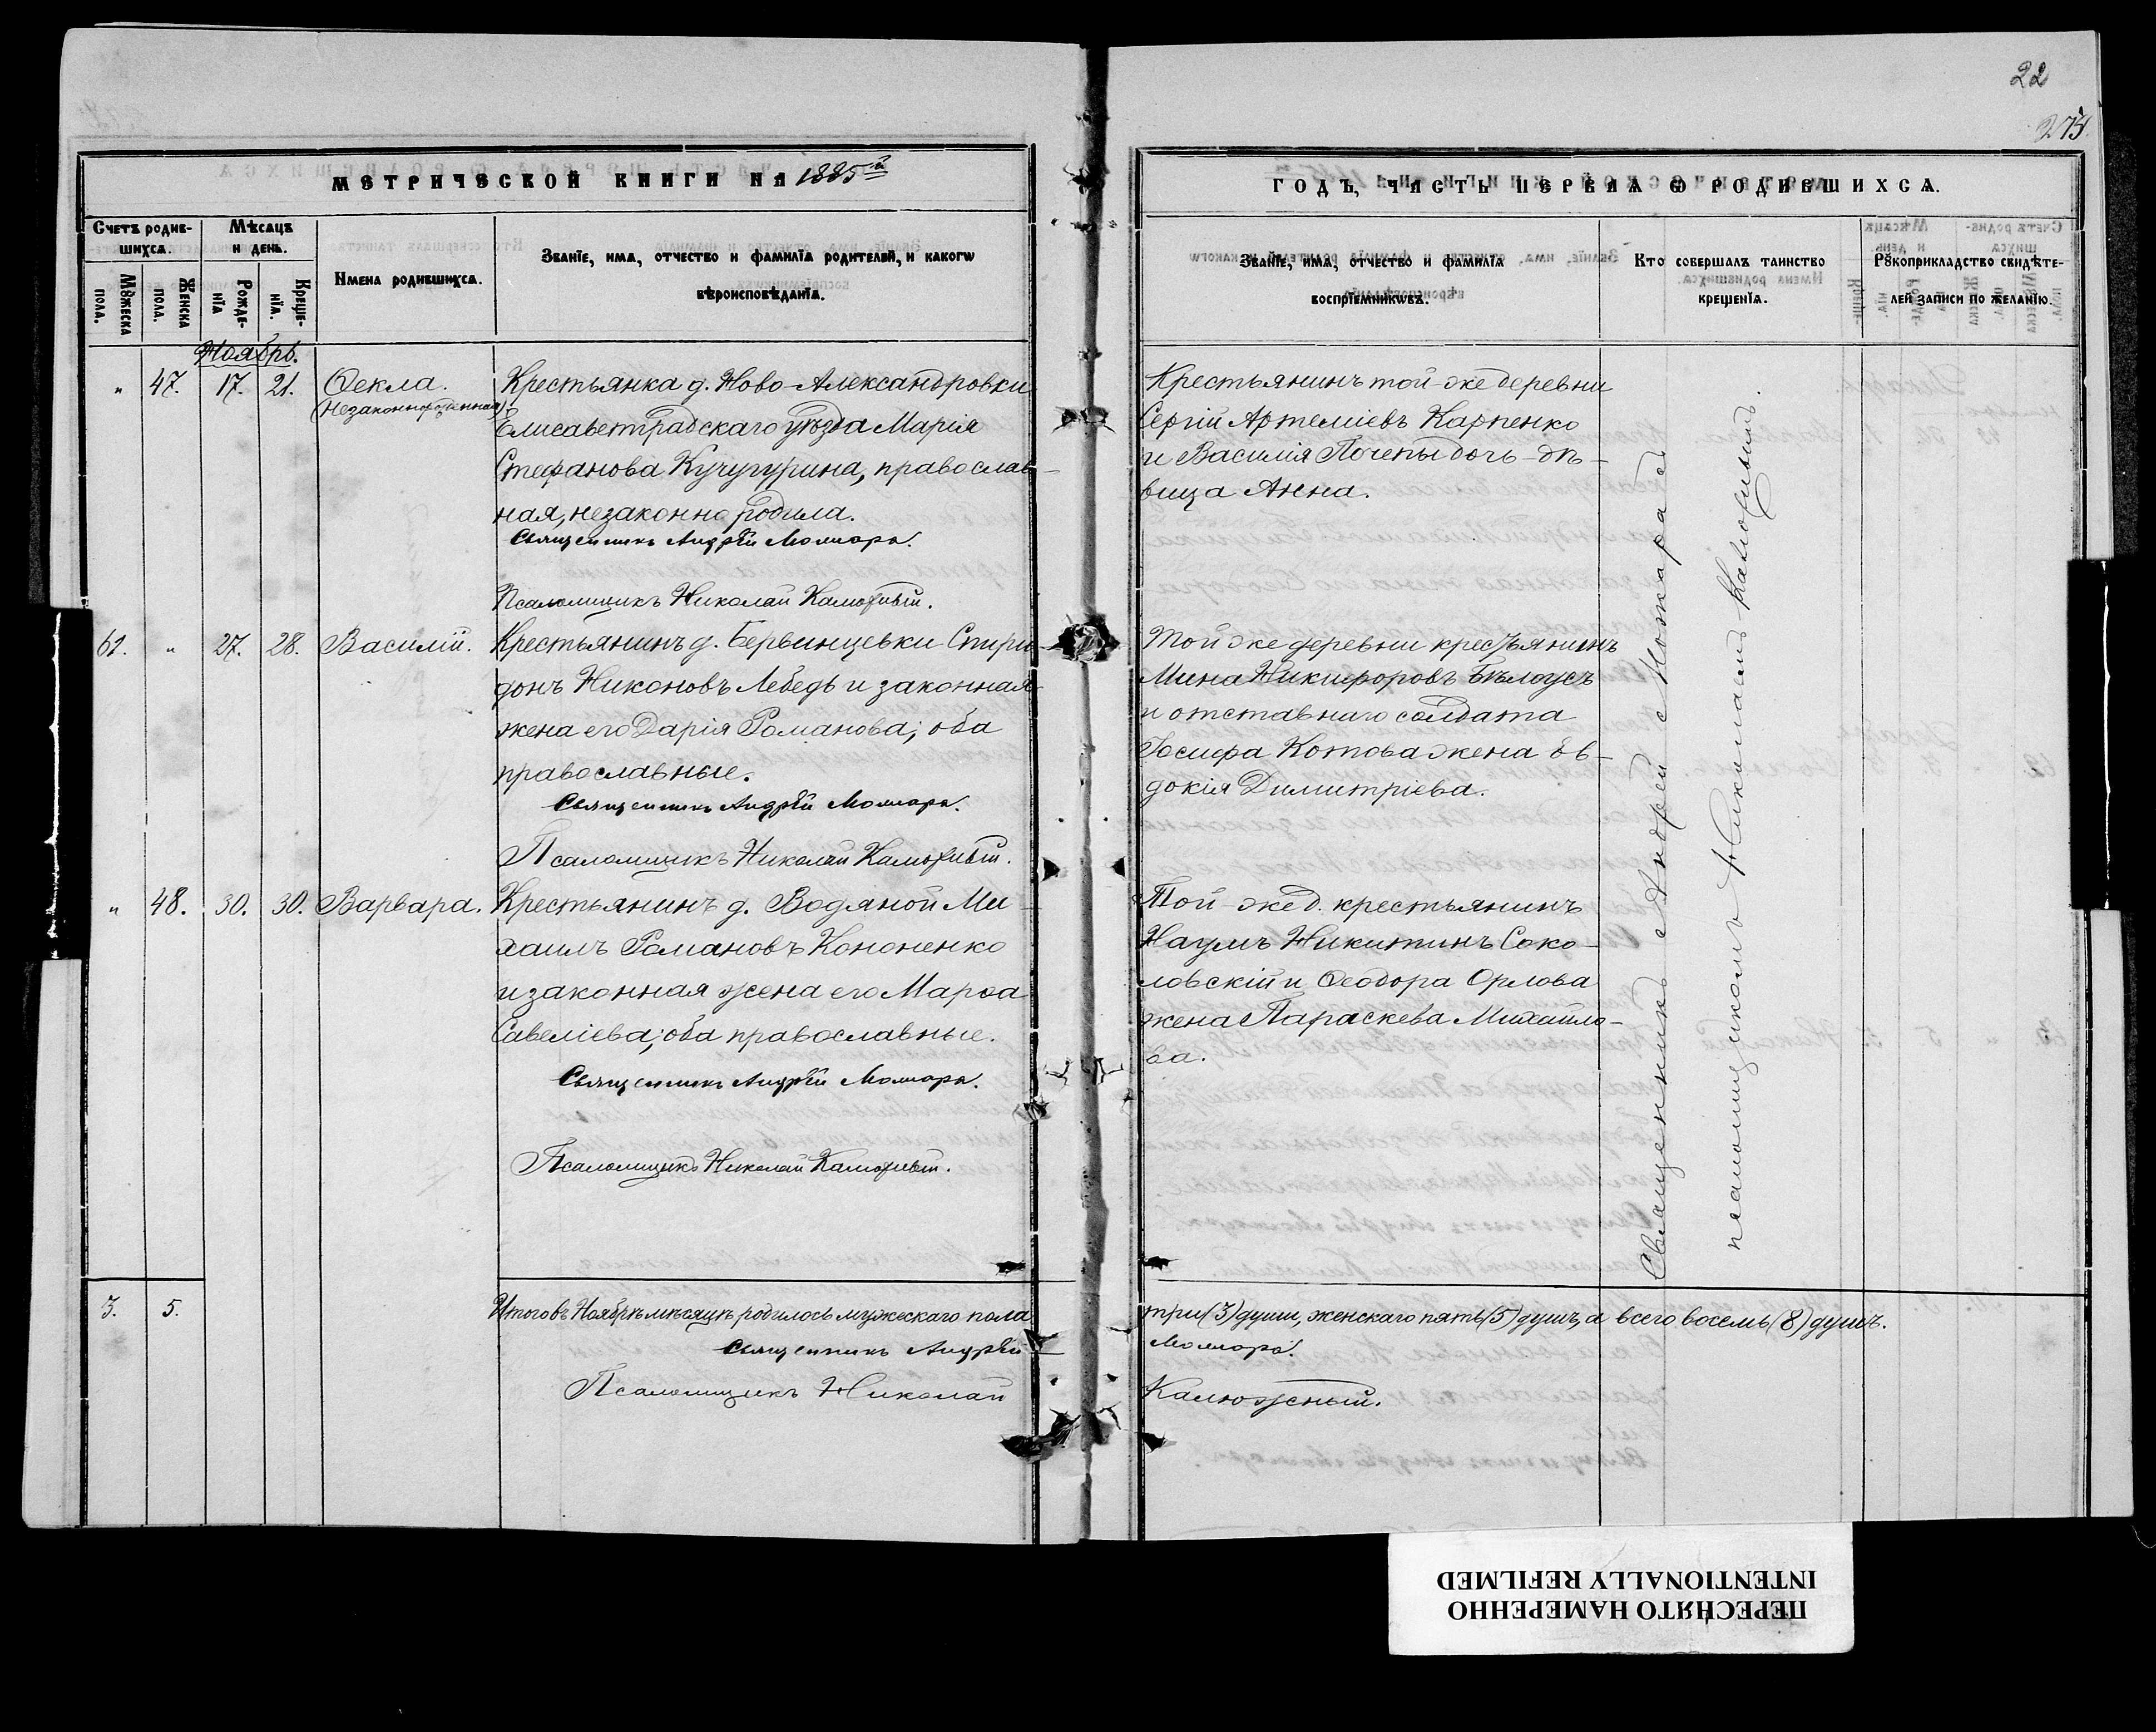 22
275.
МЕТРИЧЕСКОЙ КНИГИ НА 1885й
ГОДЪ, ЧАСТЬ ПЕРВАѦ Ѡ РОДИВШИХСѦ.
Счетъ родив-
шихсѧ.
Мѣсѧцъ
и день.
Мꙋжеска
пола.
Женска
пола.
Рожде-
нїѧ
Креще-
нїѧ.
Имена родившихсѧ.
Званїе, имѧ, отчество и фамилїѧ родителей, и какогѡ
вѣроисповѣданїѧ.
Званїе, имѧ, отчество и фамилїѧ
воспрїемникѡвъ.
Кто совершалъ таинство
крещенїѧ.
Рꙋкоприкладство свидѣте-
лей записи по желанїю.
Ноябрь.
" 47. 17. 21. Ѳекла.
(незаконнорожденная)
Крестьянка д. Ново-Александровки
Елисаветградскаго уѣзда Марія
Стефанова Кучугурина, православ-
ная, незаконно родила.
Священникъ Андрѣй Можара.
Псаломщикъ Николай Калюжный.
Крестьянинъ той-же деревни
Сергій Артеміевъ Карпенко
и Василія Почепы дочь-дѣ-
вица Анна.
61. " 27. 28. Василій.
Крестьянинъ д. Бервинцевки Спири-
донъ Никоновъ Лебедь и законная
жена его Дарія Романова; оба
православные.
Священникъ Андрѣй Можара.
Псаломщикъ Николай Калюжный.
Той же деревни крестьянинъ
Мина Никифоровъ Бѣлоусъ
и отставнаго солдата
Іосифа Котова жена Ев-
докія Димитріева.
" 48. 30. 30. Варвара.
Крестьянинъ д. Водяной Ми-
хаилъ Романовъ Кононенко
и законная жена его Марѳа
Савеліева; оба православные.
Священникъ Андрѣй Можара.
Псаломщикъ Николай Калюжный.
Той-же д. крестьянинъ
Наумъ Никитинъ Соко-
ловскій и Ѳеодора Орлова
жена Параскева Михайло-
ва.
Священникъ Андрей Можара съ
псаломщикомъ Николаемъ Калюжнымъ.
3. 5.
Итого въ Ноябрѣ мѣсяцѣ родилось мужескаго пола три (3) души, женскаго пять (5) душъ, а всего восемь (8) душъ.
Священникъ Андрѣй Можара.
Псаломщикъ Николай Калюжный.
ПЕРЕСНЯТО НАМЕРЕННО
INTENTIONALLY REFILMED